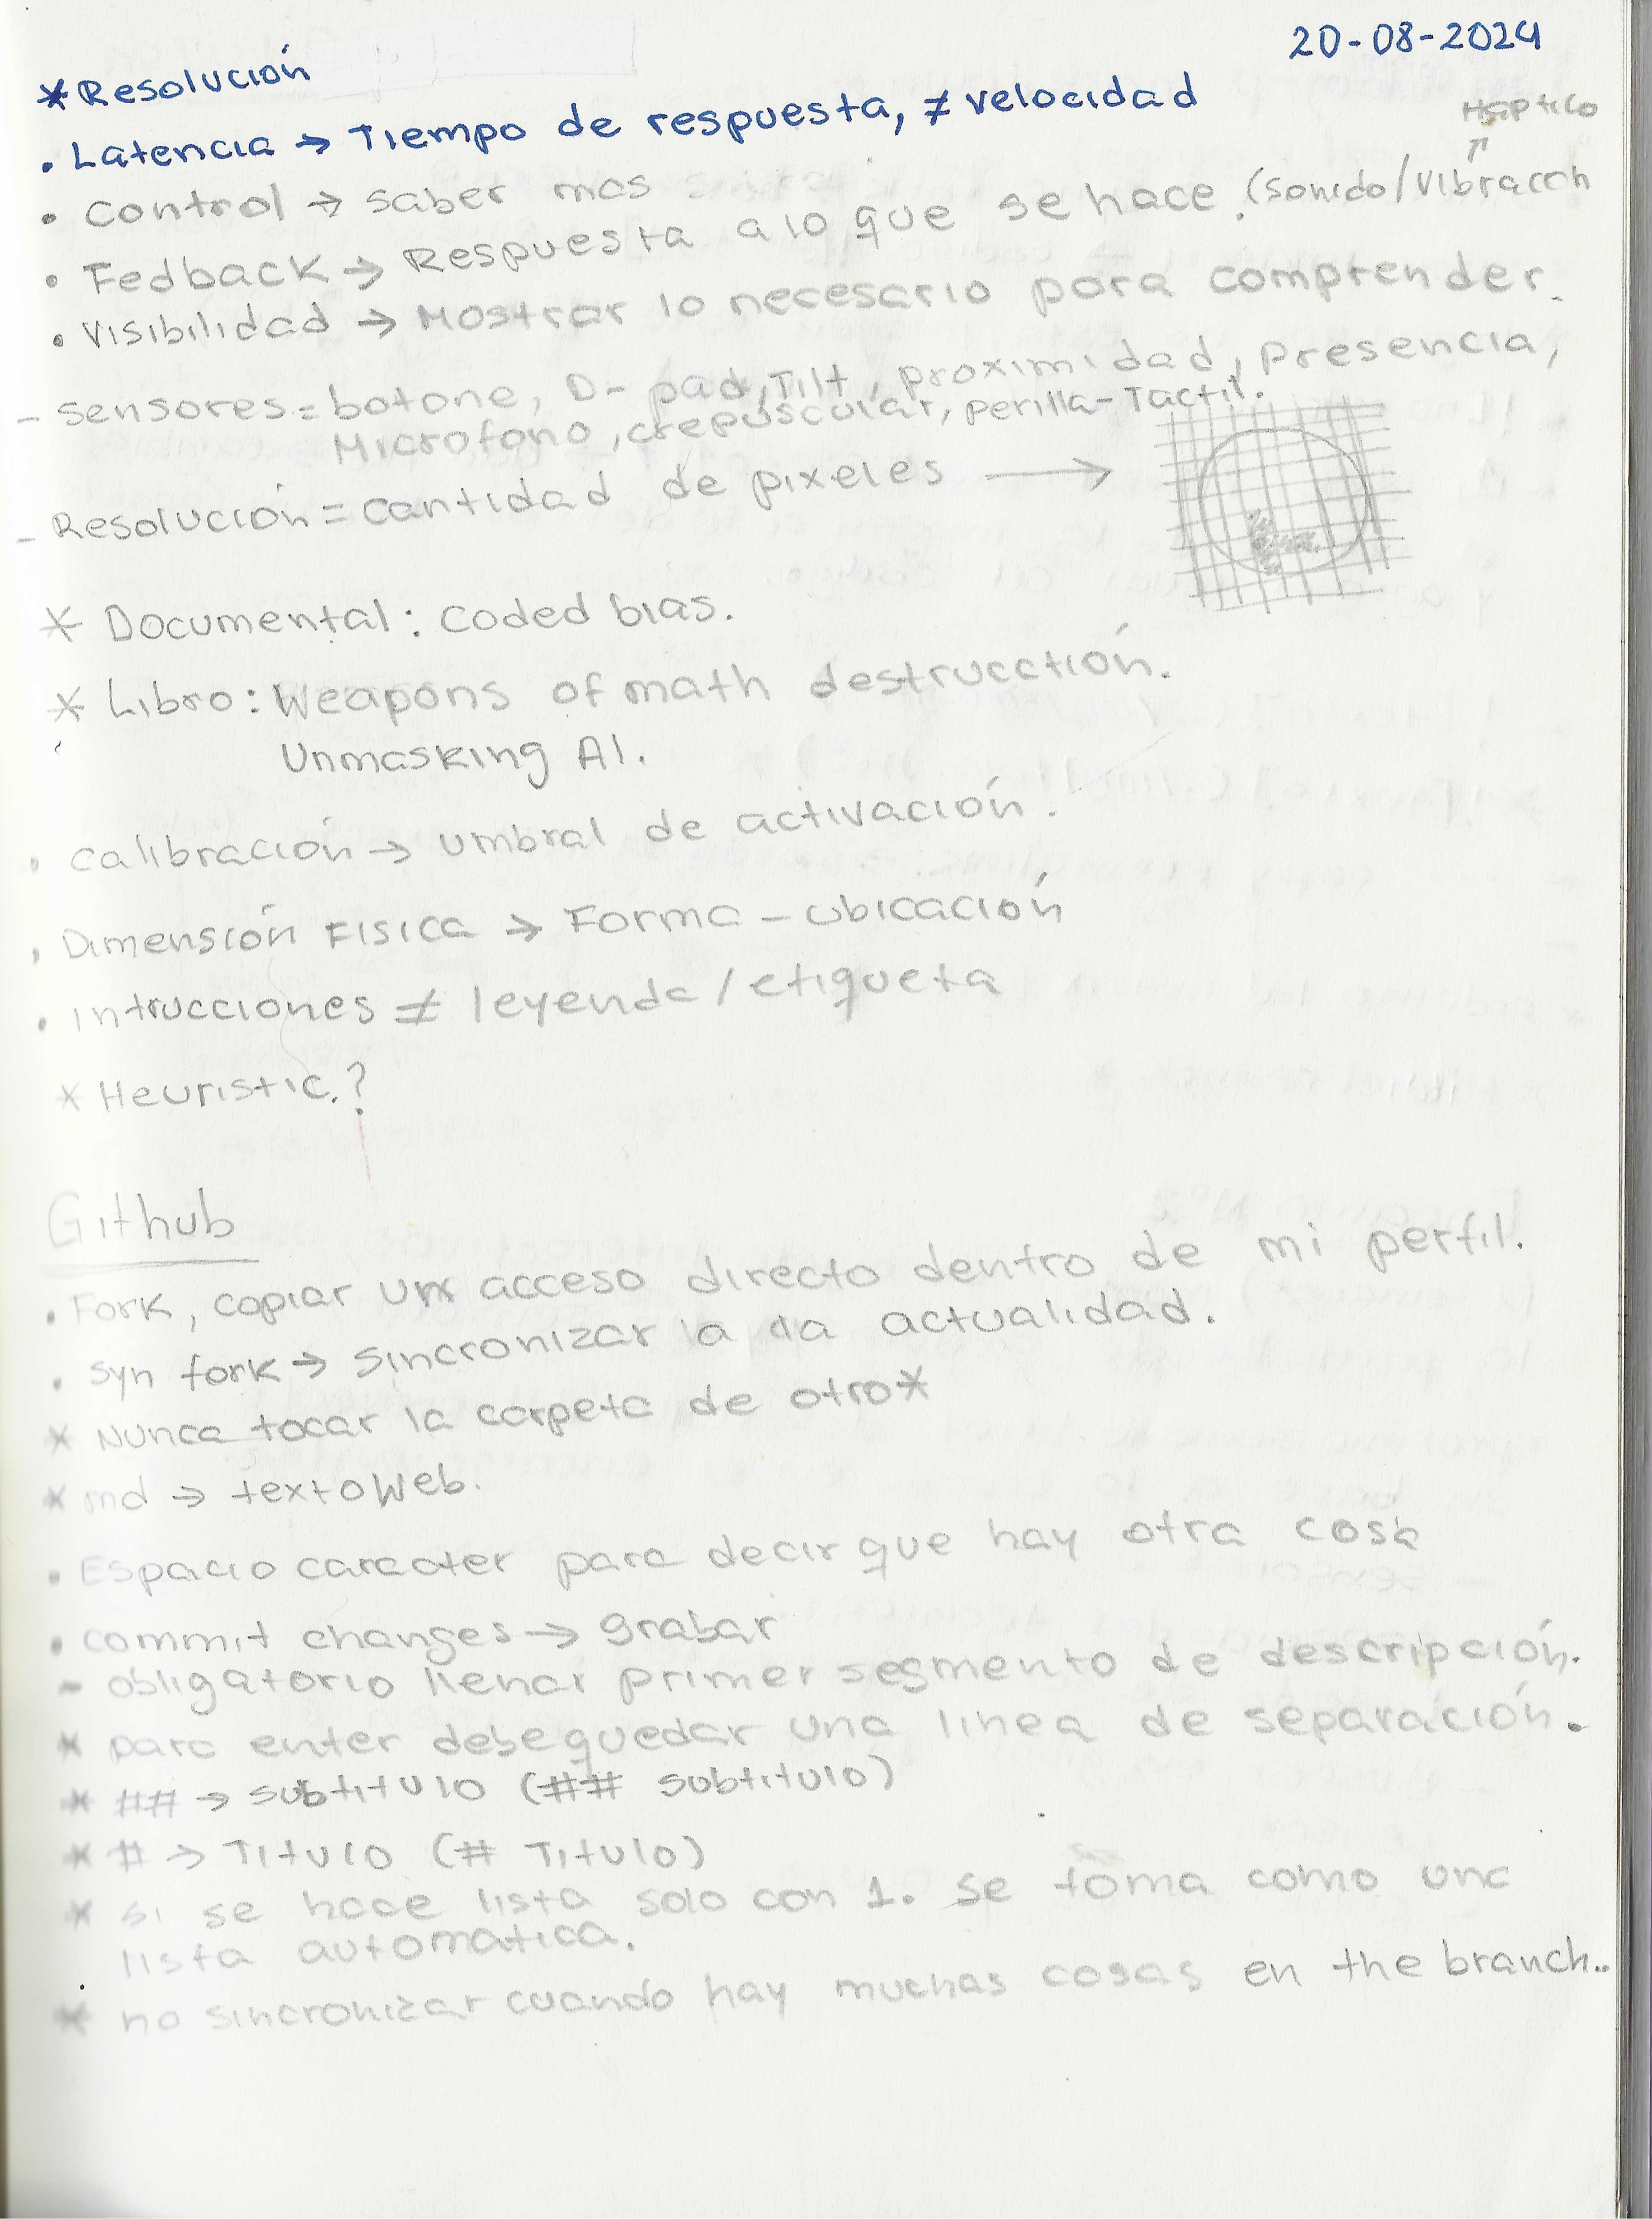 20-08-2024
* Resolución
• Latencia → Tiempo de respuesta, ≠ velocidad
Háptico
↗
• control → saber mas
• Fedback → Respuesta a lo que se hace. (sonido/vibracón
• visibilidad → Mostrar lo necesario para comprender.
- sensores = botone, D-pad, Tilt, proximidad, presencia,
Microfono, crepúscular, perilla-Tactil.
- Resolución = cantidad de pixeles →
* Documental: coded bias.
* Libro: Weapons of math destrucctión.
Unmasking AI.
• calibración → umbral de activación.
• Dimensión Fisica → Forma - ubicación
• intrucciones ≠ leyenda / etiqueta
* Heuristic.?
Github
• Fork, copiar un acceso directo dentro de mi perfil.
• syn fork → sincronizar la da actualidad.
* Nunca tocar la carpeta de otro*
* md → texto Web.
• Espacio caracter para decir que hay otra cosa
• commit changes → grabar
- obligatorio llenar primer segmento de descripción.
* para enter debe quedar una linea de separación.
* ## → subtitulo (## subtitulo)
* # → Titulo (# Titulo)
* si se hace lista solo con 1. se toma como una
lista automatica.
* no sincronizar cuando hay muchas cosas en the branch..